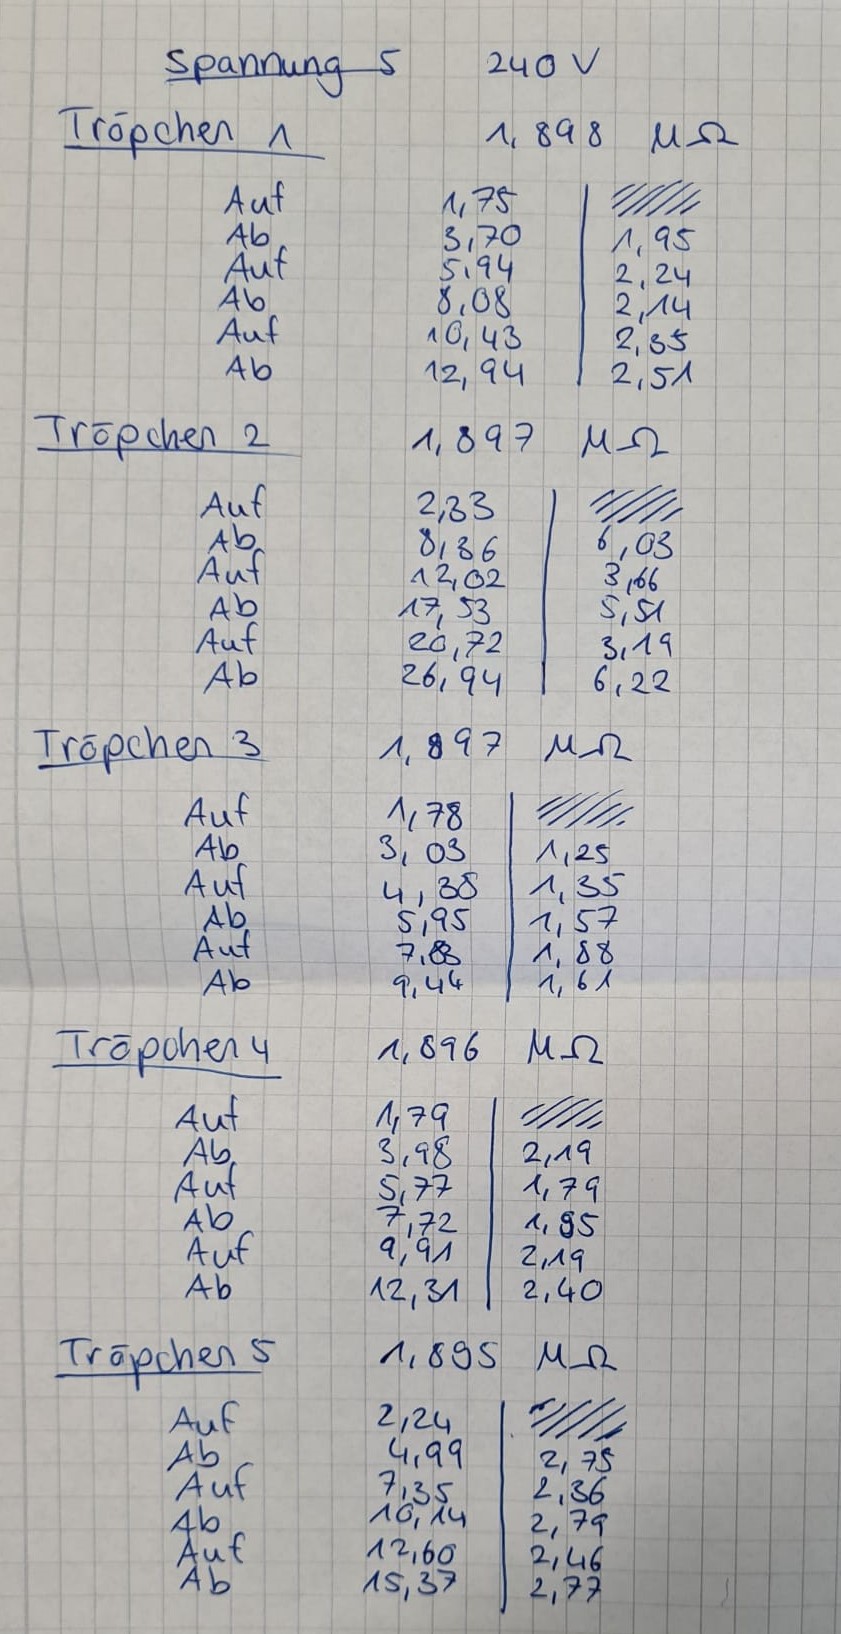 Spannung 5 240 V
Tröpchen 1 1,898 MΩ
Auf 1,75
Ab 3,70 1,95
Auf 5,94 2,24
Ab 8,08 2,14
Auf 10,43 2,35
Ab 12,94 2,51
Tröpchen 2 1,897 MΩ
Auf 2,33
Ab 8,36 6,03
Auf 12,02 3,66
Ab 17,53 5,51
Auf 20,72 3,19
Ab 26,94 6,22
Tröpchen 3 1,897 MΩ
Auf 1,78
Ab 3,03 1,25
Auf 4,38 1,35
Ab 5,95 1,57
Auf 7,83 1,88
Ab 9,44 1,61
Tröpchen 4 1,896 MΩ
Auf 1,79
Ab 3,98 2,19
Auf 5,77 1,79
Ab 7,72 1,95
Auf 9,91 2,19
Ab 12,31 2,40
Tröpchen 5 1,895 MΩ
Auf 2,24
Ab 4,99 2,75
Auf 7,35 2,36
Ab 10,14 2,79
Auf 12,60 2,46
Ab 15,37 2,77